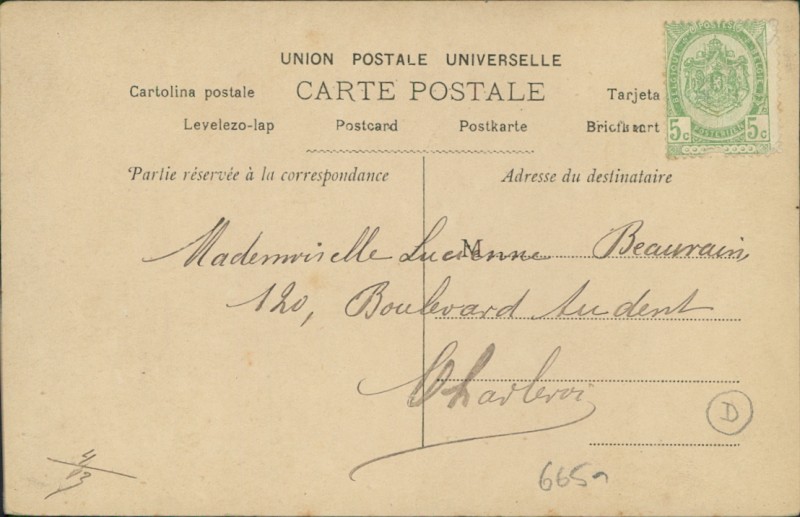 UNION POSTALE UNIVERSELLE
Cartolina postale CARTE POSTALE Tarjeta
Levelezo-lap Postcard Postkarte Briefkaart
Partie réservée à la correspondance
Adresse du destinataire
M
Mademoiselle Lucienne Beauvain
120, Boulevard Audent
Charleroi
D
4/13
665
BELGIQUE POSTES BELGIË
5c 5c